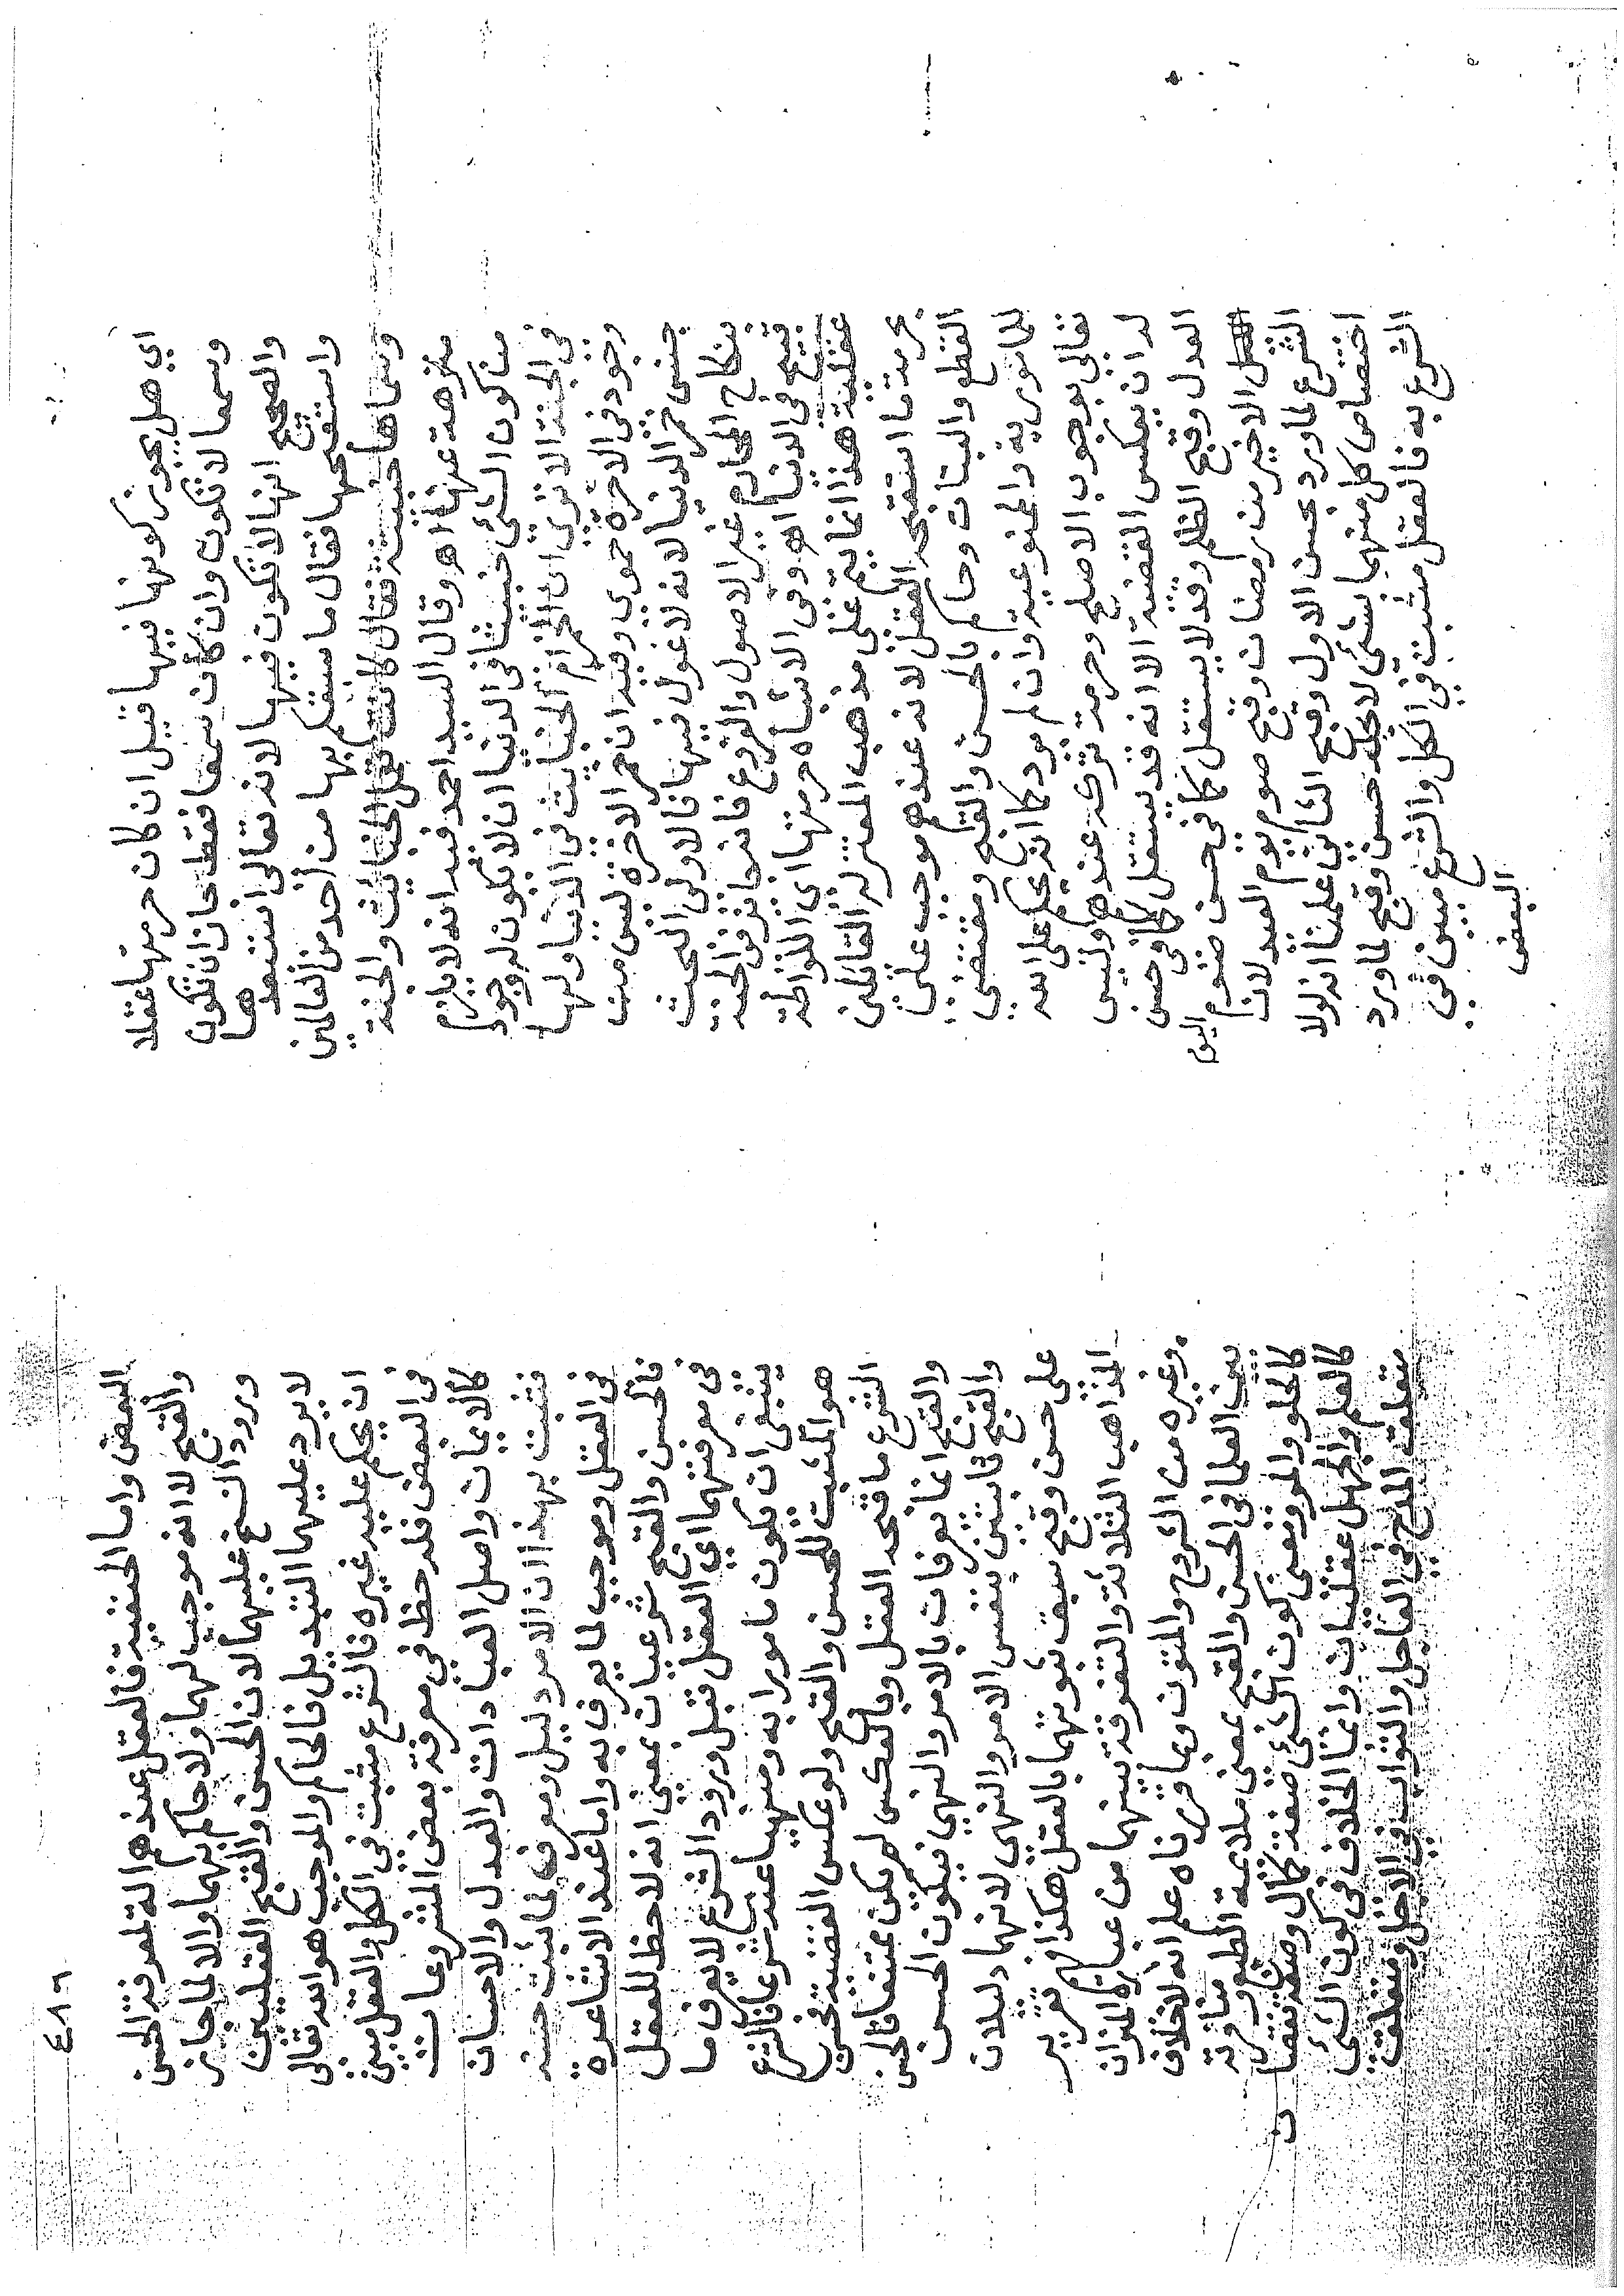 اي هل يجوز كونها فيها قيل ان كان حرمتها عقلا
وسمعا لا تكون وان كان سمعا فقط جاز ان تكون
والصحيح انها لا تكون فيها لانه تعالى استبعدها
واستقبحها فقال ما سبقكم بها من أحد من العالمين
وسماها خبيثة فقال كانت تعمل الخبائث والجنة
منزهة عنها اهـ وقال السيد احمد فيه انه لا يلزم
من كون الشئ خبيثا في الدنيا ان لا يكون له وجود
في الجنة الا ترى ان الخمر ام الخبائث في الدنيا ولها
وجود في الاخرة حموي وفيه ان خمر الاخرة ليس من
جنس خمر الدنيا لانه لا غول فيها فالاولى البحث
بنكاح المحارم غير الاصول والفروع فانه جائز في الجنة
قبيح في الدنيا اهـ وفي الاشباه حرمتها اي اللواطة
عقلية هذا انما يتم على مذهب المعتزلة القائلين
بحرمة ما استقبحه العقل لانه عندهم موجب على
القطع والبتات وحاكم بالحسن والقبح ومقتضى
للمامورية والمنوعية وان لم يرد كما انه يحكم على الله
تعالى بوجوب الاصلح وحرمة تركه عندهم وليس
له ان يعكس القضية الا انه قد يستقل كما في حسن
العدل وقبح الظلم وقد لا يستقل كما في حسن صوم اليوم
الاخير من رمضان وقبح صوم يوم العيد لان
الشرع لما ورد بحسن الاول وقبح الثاني علمنا انه لولا
اختصاص كل منهما بشئ لاجله حسن وقبح لما ورد
الشرع به فالعقل مثبت في الكل والشرع مبين في
البعض
٤٨٦
البعض واما الحنفية فالعقل عندهم الة لمعرفة الحسن
والقبح لا انه موجب لهما ولا حاكم بهما والا لما جاز
ورود النسخ عليهما لان الحسن والقبح العقليين
لا يرد عليهما التبديل فالحاكم والموجب هو الله تعالى
ان يحكم عليه غيره فالشرع مثبت في الكل والعقل مبين
في البعض فله حظ في معرفة بعض المشروعات
كالايمان واصل العبادات والعدل والاحسان
فثبت بهذا ان الامر دليل ومعرف لما ثبت حسنه
في العقل وموجب لما يعرف به واما عند الاشاعرة
فالحسن والقبح شرعيان بمعنى انه لا حظ للعقل
في معرفتهما اي العقل قبل ورود الشرع لا يعرف ما
ينبغي ان يكون مامورا به ومنهيا عنه شرعا فالشرع
هو المثبت للحسن والقبح ولو عكس القضية فحسن
الشرع ما قبحه العقل وبالعكس لم يكن ممتنعا فالحسن
والقبح انما يعرفان بالامر والنهي فيكون الحسن
والقبح ثابتين بنفس الامر والنهي لانهما دليلان
على حسن وقبح سبق ثبوتهما بالعقل هكذا فهم تقرير
المذاهب الثلاثة والتفرقة بينهما من عبارة الميزان
وغيره من الشروح والمتون وبما قررناه علم انه لا خلاف
بين العلما في الحسن والقبح بمعنى ملايمة الطبع ومنافرته
كالحلو والمر وبمعنى كون الشئ صفة كمال وصفة نقصان
كالعلم والجهل عقليان وانما الخلاف في كون الشئ
متعلق المدح في العاجل والثواب في الاجل ومتعلق